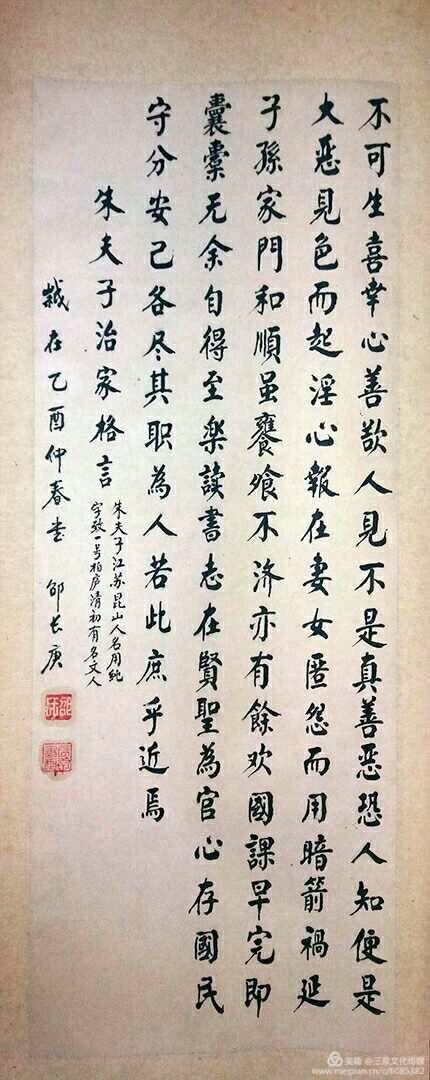 不可生喜幸心善欲人見不是真善恶恐人知便是
大恶見色而起淫心報在妻女匿怨而用暗箭禍延
子孫家門和順虽饔飧不济亦有餘欢國課早完即
囊橐无余自得至樂读書志在賢聖為官心存國民
守分安己各尽其職為人若此庶乎近焉
朱夫子治家格言
朱夫子江苏昆山人名用纯
字致一号柏庐清初有名文人
在乙酉仲春书 邵长庚
美篇 @三泉文化传媒
www.meipian.cn/c/6085382